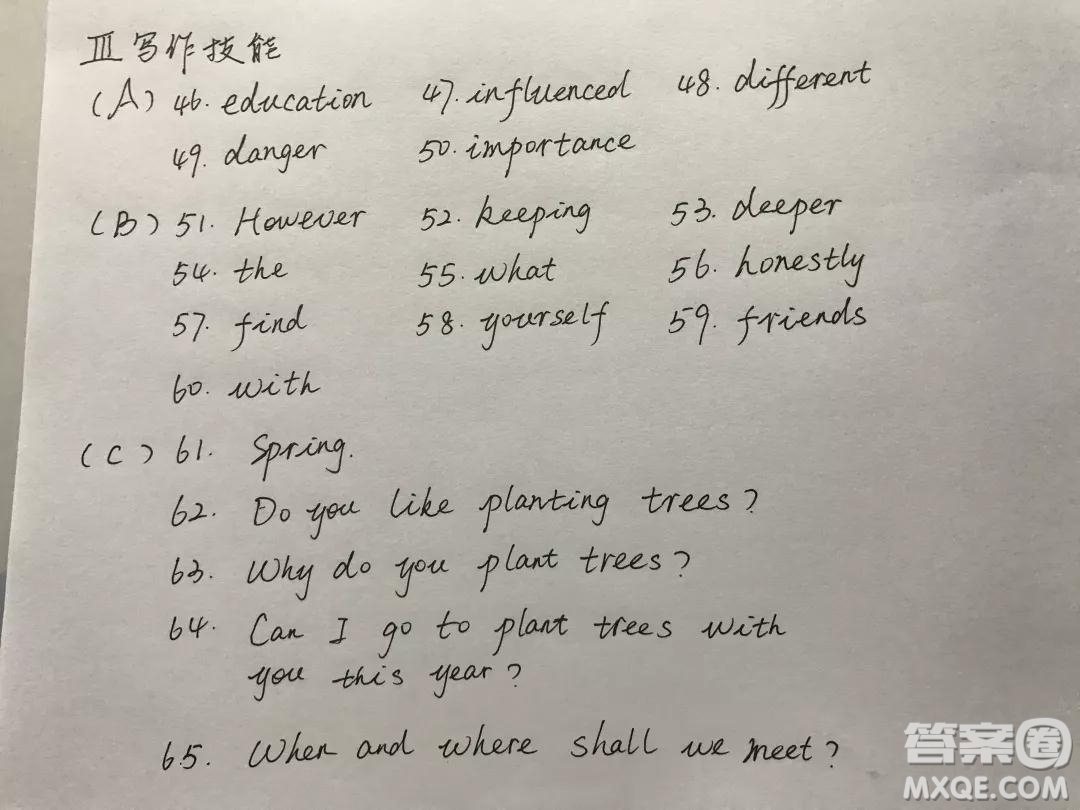 Ⅲ 写作技能
(A) 46. education 47. influenced 48. different
49. danger 50. importance
(B) 51. However 52. keeping 53. deeper
54. the 55. what 56. honestly
57. find 58. yourself 59. friends
60. with
(C) 61. Spring.
62. Do you like planting trees?
63. Why do you plant trees?
64. Can I go to plant trees with
you this year?
65. When and where shall we meet?
答案圈
MXQE.COM